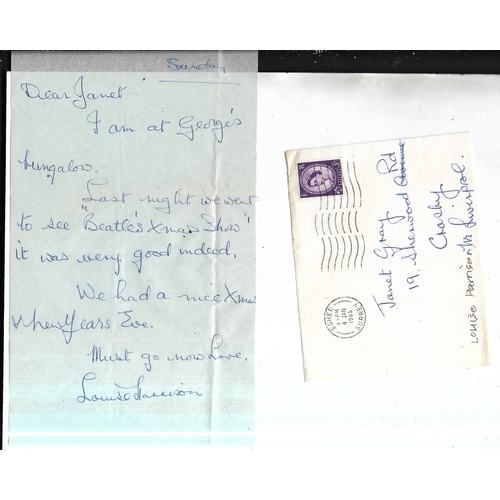 Sunday
Dear Janet
I am at George's
bungalow.
Last night we went
to see "Beatle's Xmas Show"
it was very good indeed.
We had a nice Xmas
& New Years Eve.
Must go now Love.
Louise Harrison
ESHER
1-PM
4 JAN
1965
SURREY
Janet Gray
19, Sherwood Avenue Rd
Crosby
Nr Liverpool.
Louise Harrison